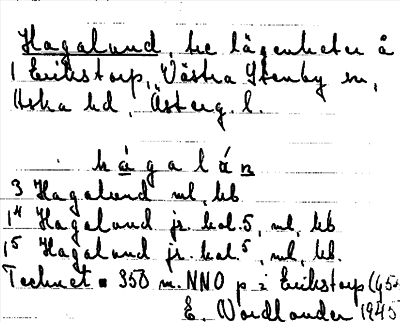 Hagalund, tre lägenheter å
1 Erikstorp, Västra Stenby sn,
Aska hd, Österg. l.
hágalán
3 Hagalund ml, kb
1⁴ Hagalund jr. kol. 5, ml, kb
1⁵ Hagalund jr. kol. 5, ml, kb.
Tecknet ▪ 350 m. NNO p i Erikstorp (G5
E. Nordlander 1945